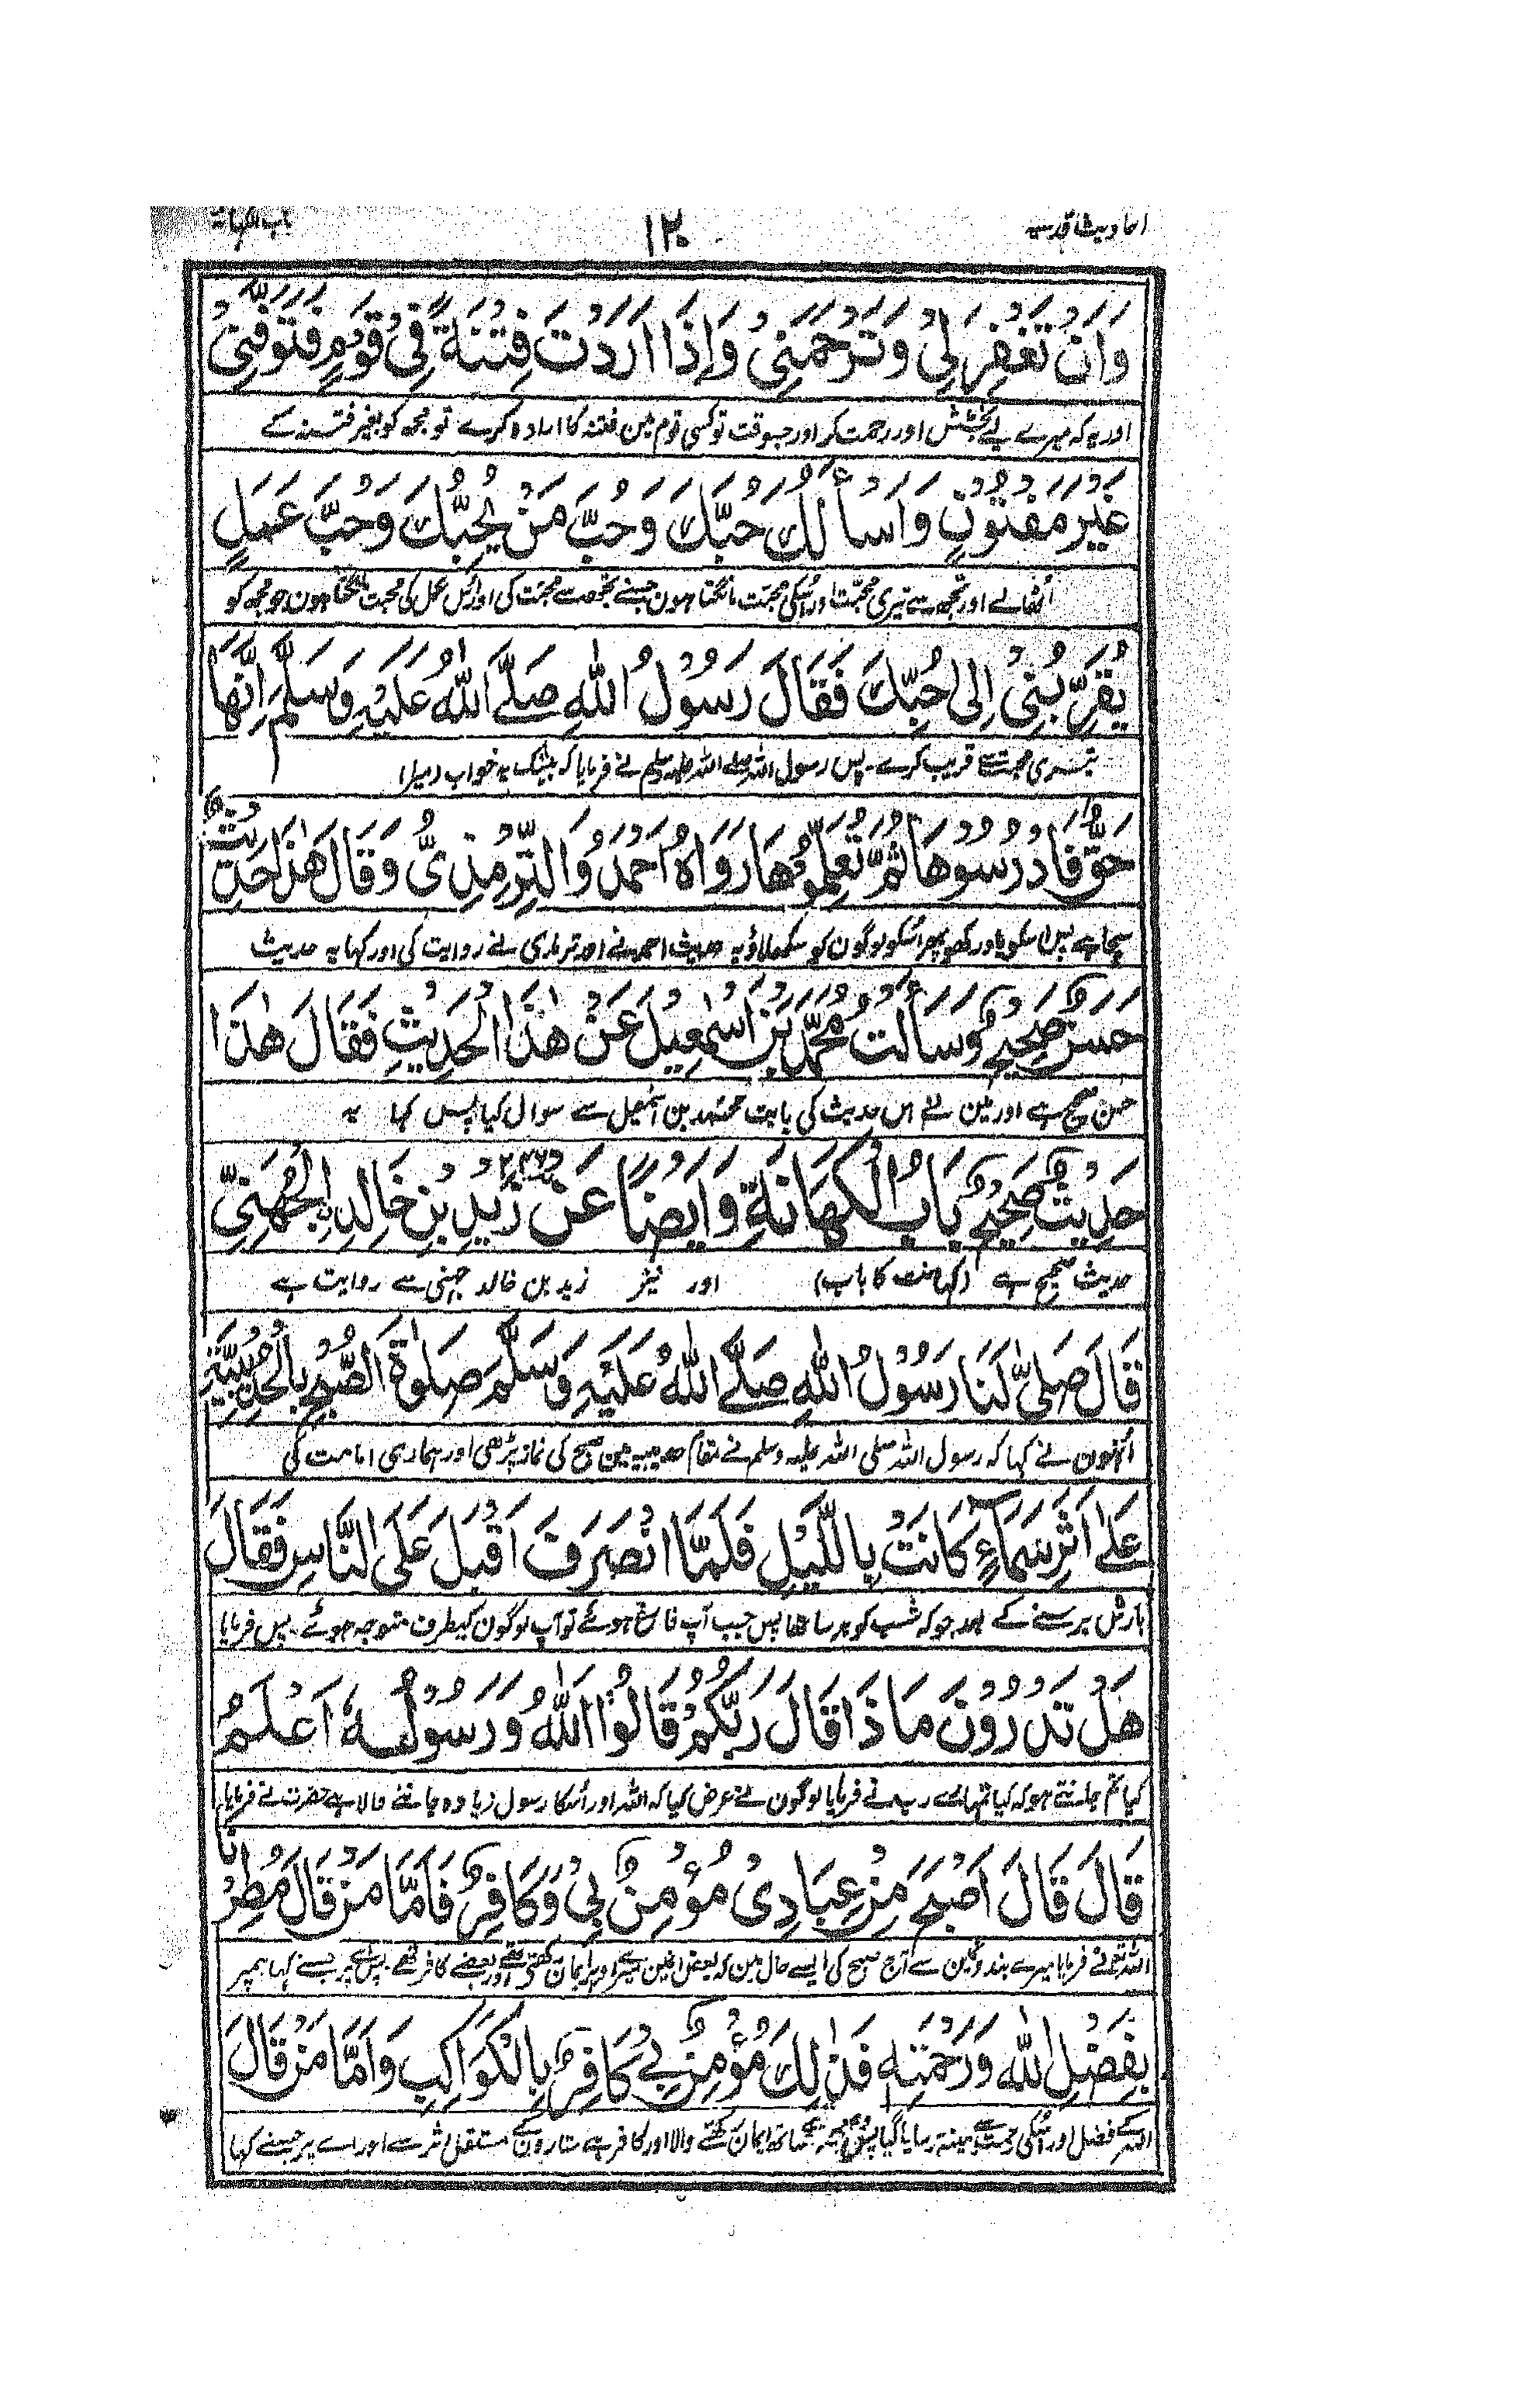 احادیث قدسیہ
۱۲۰
باب الکہانۃ
وَاَنْ تَغْفِرَ لِیْ وَتَرْحَمَنِیْ وَاِذَا اَرَدْتَ فِتْنَةً فِیْ قَوْمٍ فَتَوَفَّنِیْ
اور یہ کہ میرے لیے بخشش اور رحمت کر اور جسوقت تو کسی قوم مین فتنہ کا ارادہ کرے تو مجھ کو بغیر فتنہ کے
غَیْرَ مَفْتُوْنٍ وَاَسْأَلُكَ حُبَّكَ وَحُبَّ مَنْ یُّحِبُّكَ وَحُبَّ عَمَلٍ
اُٹھالے اور تجھ سے تیری محبّت اور اُسکی محبّت مانگتا ہون جسنے تجھ سے محبّت کی اور اُس عمل کی محبت مانگتا ہون جو مجھ کو
یُقَرِّبُنِیْ اِلٰی حُبِّكَ فَقَالَ رَسُوْلُ اللّٰهِ صَلَّے اللّٰهُ عَلَیْهِ وَسَلَّمَ اِنَّهَا
تیری محبت سے قریب کرے۔ پس رسول اللہ صلے اللہ علیہ وسلم نے فرمایا کہ بیشک یہ خواب (میرا)
حَقٌّ فَادْرُسُوْهَا ثُمَّ تَعَلَّمُوْهَا رَوَاهُ اَحْمَدُ وَالتِّرْمِذِیُّ وَقَالَ هٰذَا حَدِیْثٌ
سچا ہے پس اسکو یاد رکھو پھر اُسکو لوگون کو سکھلاؤ یہ حدیث احمد نے اور ترمذی نے روایت کی اور کہا یہ حدیث
حَسَنٌ صَحِیْحٌ وَسَأَلْتُ مُحَمَّدَ بْنَ اِسْمٰعِیْلَ عَنْ هٰذَا الْحَدِیْثِ فَقَالَ هٰذَا
حسن صحیح ہے اور مین نے اس حدیث کی بابت محمد بن اسمٰعیل سے سوال کیا پس کہا یہ
حَدِیْثٌ صَحِیْحٌ بَابُ الْكَهَانَةِ وَاَیْضًا عَنْ زَیْدِ بْنِ خَالِدِ الْجُهَنِیِّ
حدیث صحیح ہے (کہانت کا باب) اور نیز زید بن خالد جہنی سے روایت ہے
قَالَ صَلّٰی لَنَا رَسُوْلُ اللّٰهِ صَلَّے اللّٰهُ عَلَیْهِ وَسَلَّمَ صَلٰوةَ الصُّبْحِ بِالْحُدَیْبِیَّةِ
اُنہون نے کہا کہ رسول اللہ صلی اللہ علیہ وسلم نے مقام حدیبیہ مین صبح کی نماز پڑھی اور ہماری امامت کی
عَلٰے اَثَرِ سَمَآءٍ كَانَتْ بِاللَّیْلِ فَلَمَّا انْصَرَفَ اَقْبَلَ عَلَی النَّاسِ فَقَالَ
بارش برسنے کے بعد جو کہ شب کو برسا تھا پس جب آپ فارغ ہوئے تو آپ لوگون کیطرف متوجہ ہوئے۔ پس فرمایا
هَلْ تَدْرُوْنَ مَا ذَا قَالَ رَبُّكُمْ قَالُوْا اَللّٰهُ وَرَسُوْلُهٗ اَعْلَمُ
کیا تم جانتے ہو کہ کیا تمہارے رب نے فرمایا لوگون نے عرض کیا کہ اللہ اور اُسکا رسول زیادہ جاننے والا ہے حضرت نے فرمایا
قَالَ قَالَ اَصْبَحَ مِنْ عِبَادِیْ مُؤْمِنٌ بِیْ وَكَافِرٌ فَاَمَّا مَنْ قَالَ مُطِرْنَا
اللہ تعالٰے نے فرمایا میرے بندونمین سے آج صبح کی ایسے حال مین کہ بعض انمین میرے اوپر ایمان رکھتے تھے اور بعضے کافر تھے۔ پس جسنے کہا ہمپر
بِفَضْلِ اللّٰهِ وَرَحْمَتِهٖ فَذٰلِكَ مُؤْمِنٌ بِیْ كَافِرٌ بِالْكَوَاكِبِ وَاَمَّا مَنْ قَالَ
اللہ کے فضل اور اُسکی رحمت سے مینہ برسایا گیا پس میرے ساتھ ایمان رکھنے والا اور کافر ہے ستارون کے مستقل اثر سے اور اے پر جسنے کہا